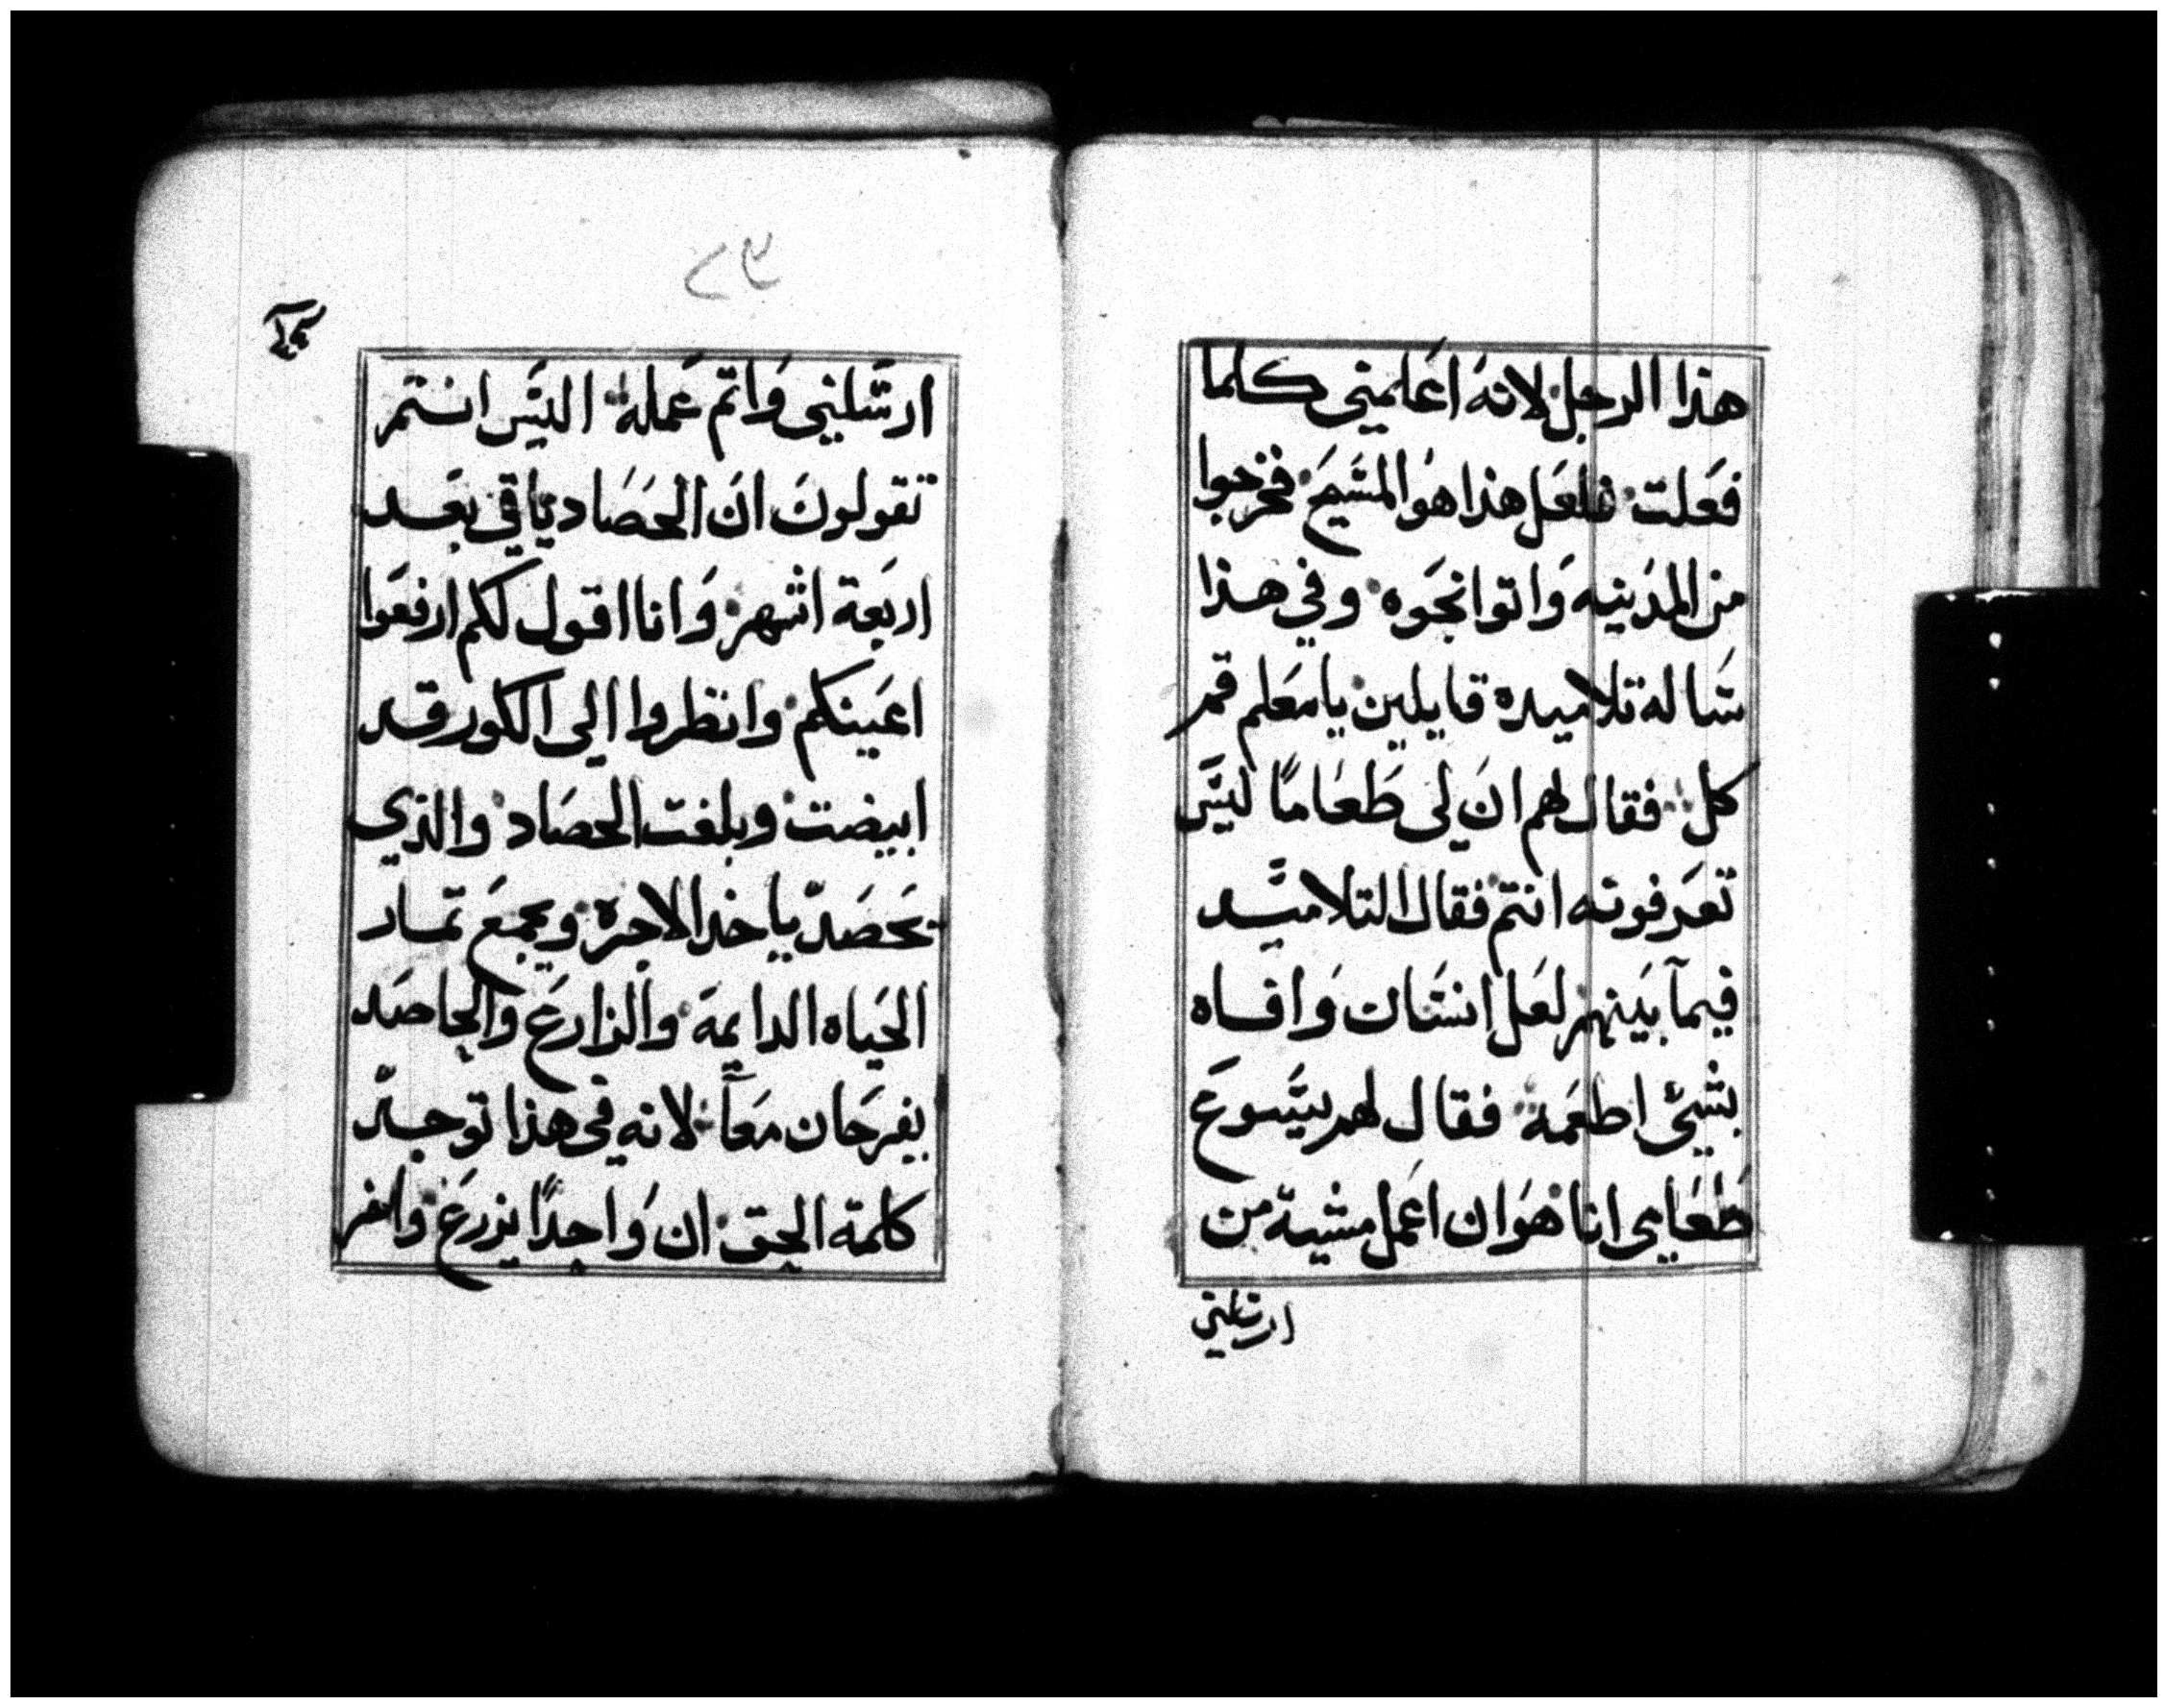 هذا الرجل لانه اعلمني كلما
فعلت فلعل هذا هو المسيح فخرجوا
من المدينه واتوا نحوه وفي هذا
ساله تلاميده قايلين يا معلم قم
كل فقال لهم ان لي طعامًا ليس
تعرفونه انتم فقال التلاميد
فيما بينهم لعل انسان وافاه
بشيئ اطعمه فقال لهم يسوع
طعامي انا هو ان اعمل مشية من
ارسلني
٢٣
ارسلني واتم عمله اليس انتم
تقولون ان الحصاد ياتي بعد
اربعة اشهر وانا اقول لكم ارفعوا
اعينكم وانظروا الي الكور قد
ابيضت وبلغت الحصاد والذي
يحصد ياخد الاجرة ويجمع تمار
الحياه الدايمة والزارع والحاصد
يفرحان معاً لانه في هذا توجد
كلمة الحق ان واحدًا يزرع واخر